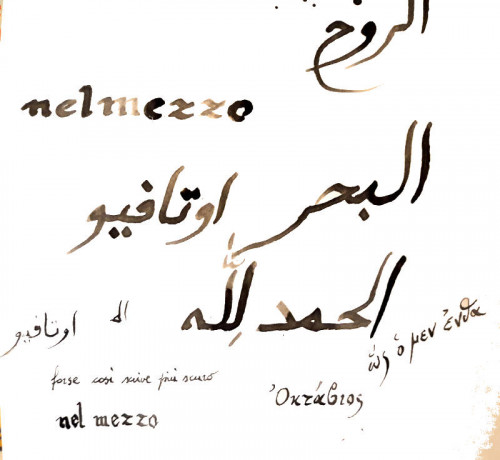 nel mezzo
البحر اوتافيو
الحمد لله
اوتافيو
ὣς ὁ μεν ἔνθα
forse così scrive più scuro
Ὀκτάβιος
nel mezzo